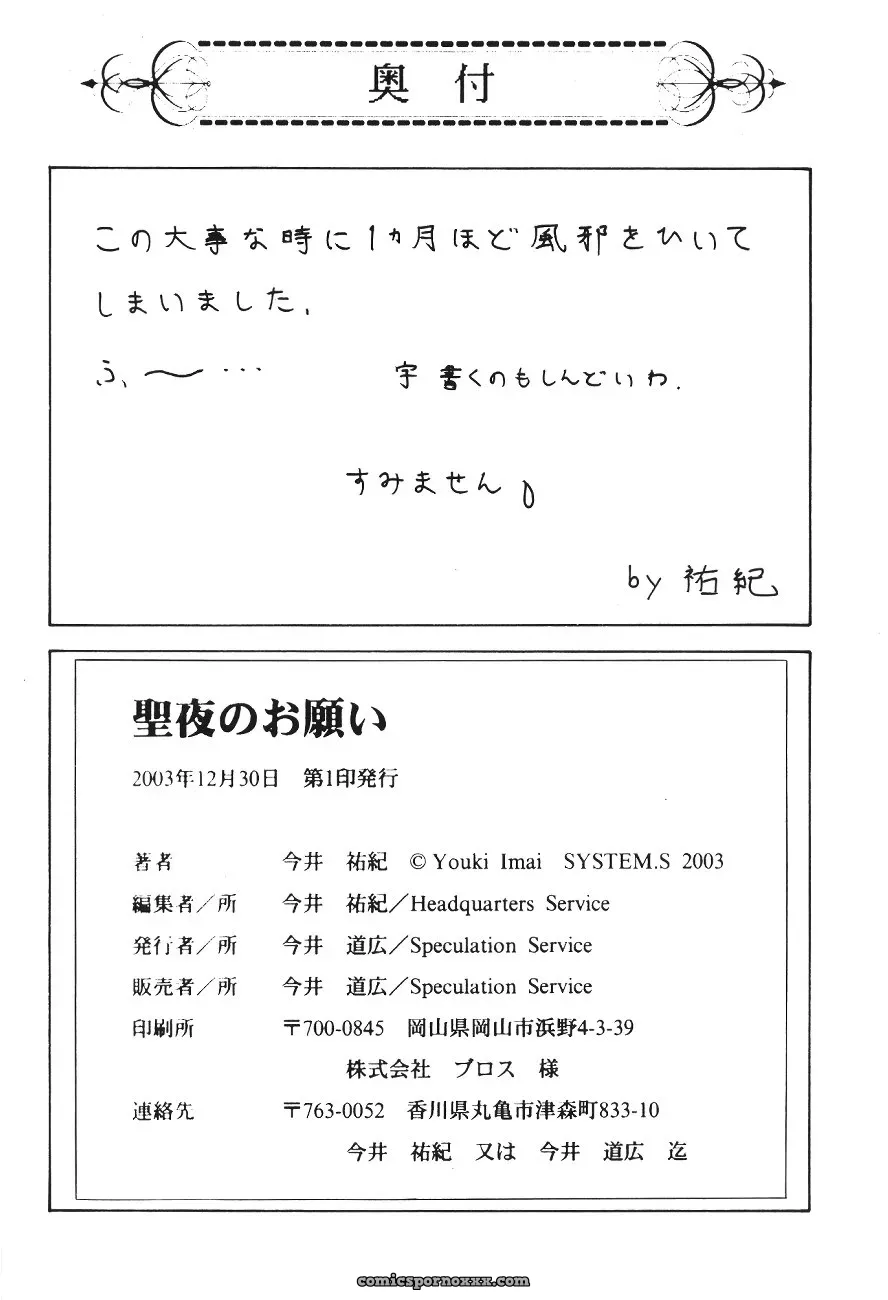 奥付
この大事な時に1ヵ月ほど風邪をひいて
しまいました.
ふ、〜… 字書くのもしんどいわ.
すみません。
by 祐紀
聖夜のお願い
2003年12月30日 第1印発行
著者 今井 祐紀 © Youki Imai SYSTEM.S 2003
編集者／所 今井 祐紀／Headquarters Service
発行者／所 今井 道広／Speculation Service
販売者／所 今井 道広／Speculation Service
印刷所 〒700-0845 岡山県岡山市浜野4-3-39
株式会社 ブロス 様
連絡先 〒763-0052 香川県丸亀市津森町833-10
今井 祐紀 又は 今井 道広 迄
comicspornoxxx.com